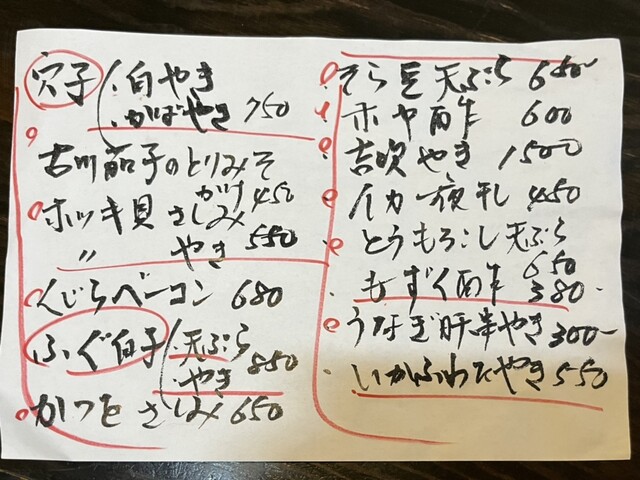 穴子 ・白やき
・かばやき 750
茄子のとりみそ
かけ 450
ホッキ貝 さしみ
〃 やき 550
くじらベーコン 680
ふぐ白子 ・天ぷら
・やき 850
かつを さしみ 650
そら豆天ぷら 680-
ホヤ酢 600
やき 1500
イカ一夜干し 450
とうもろこし天ぷら
650
もずく酢 380-
うなぎ肝串やき 300-
いかふわたやき 550